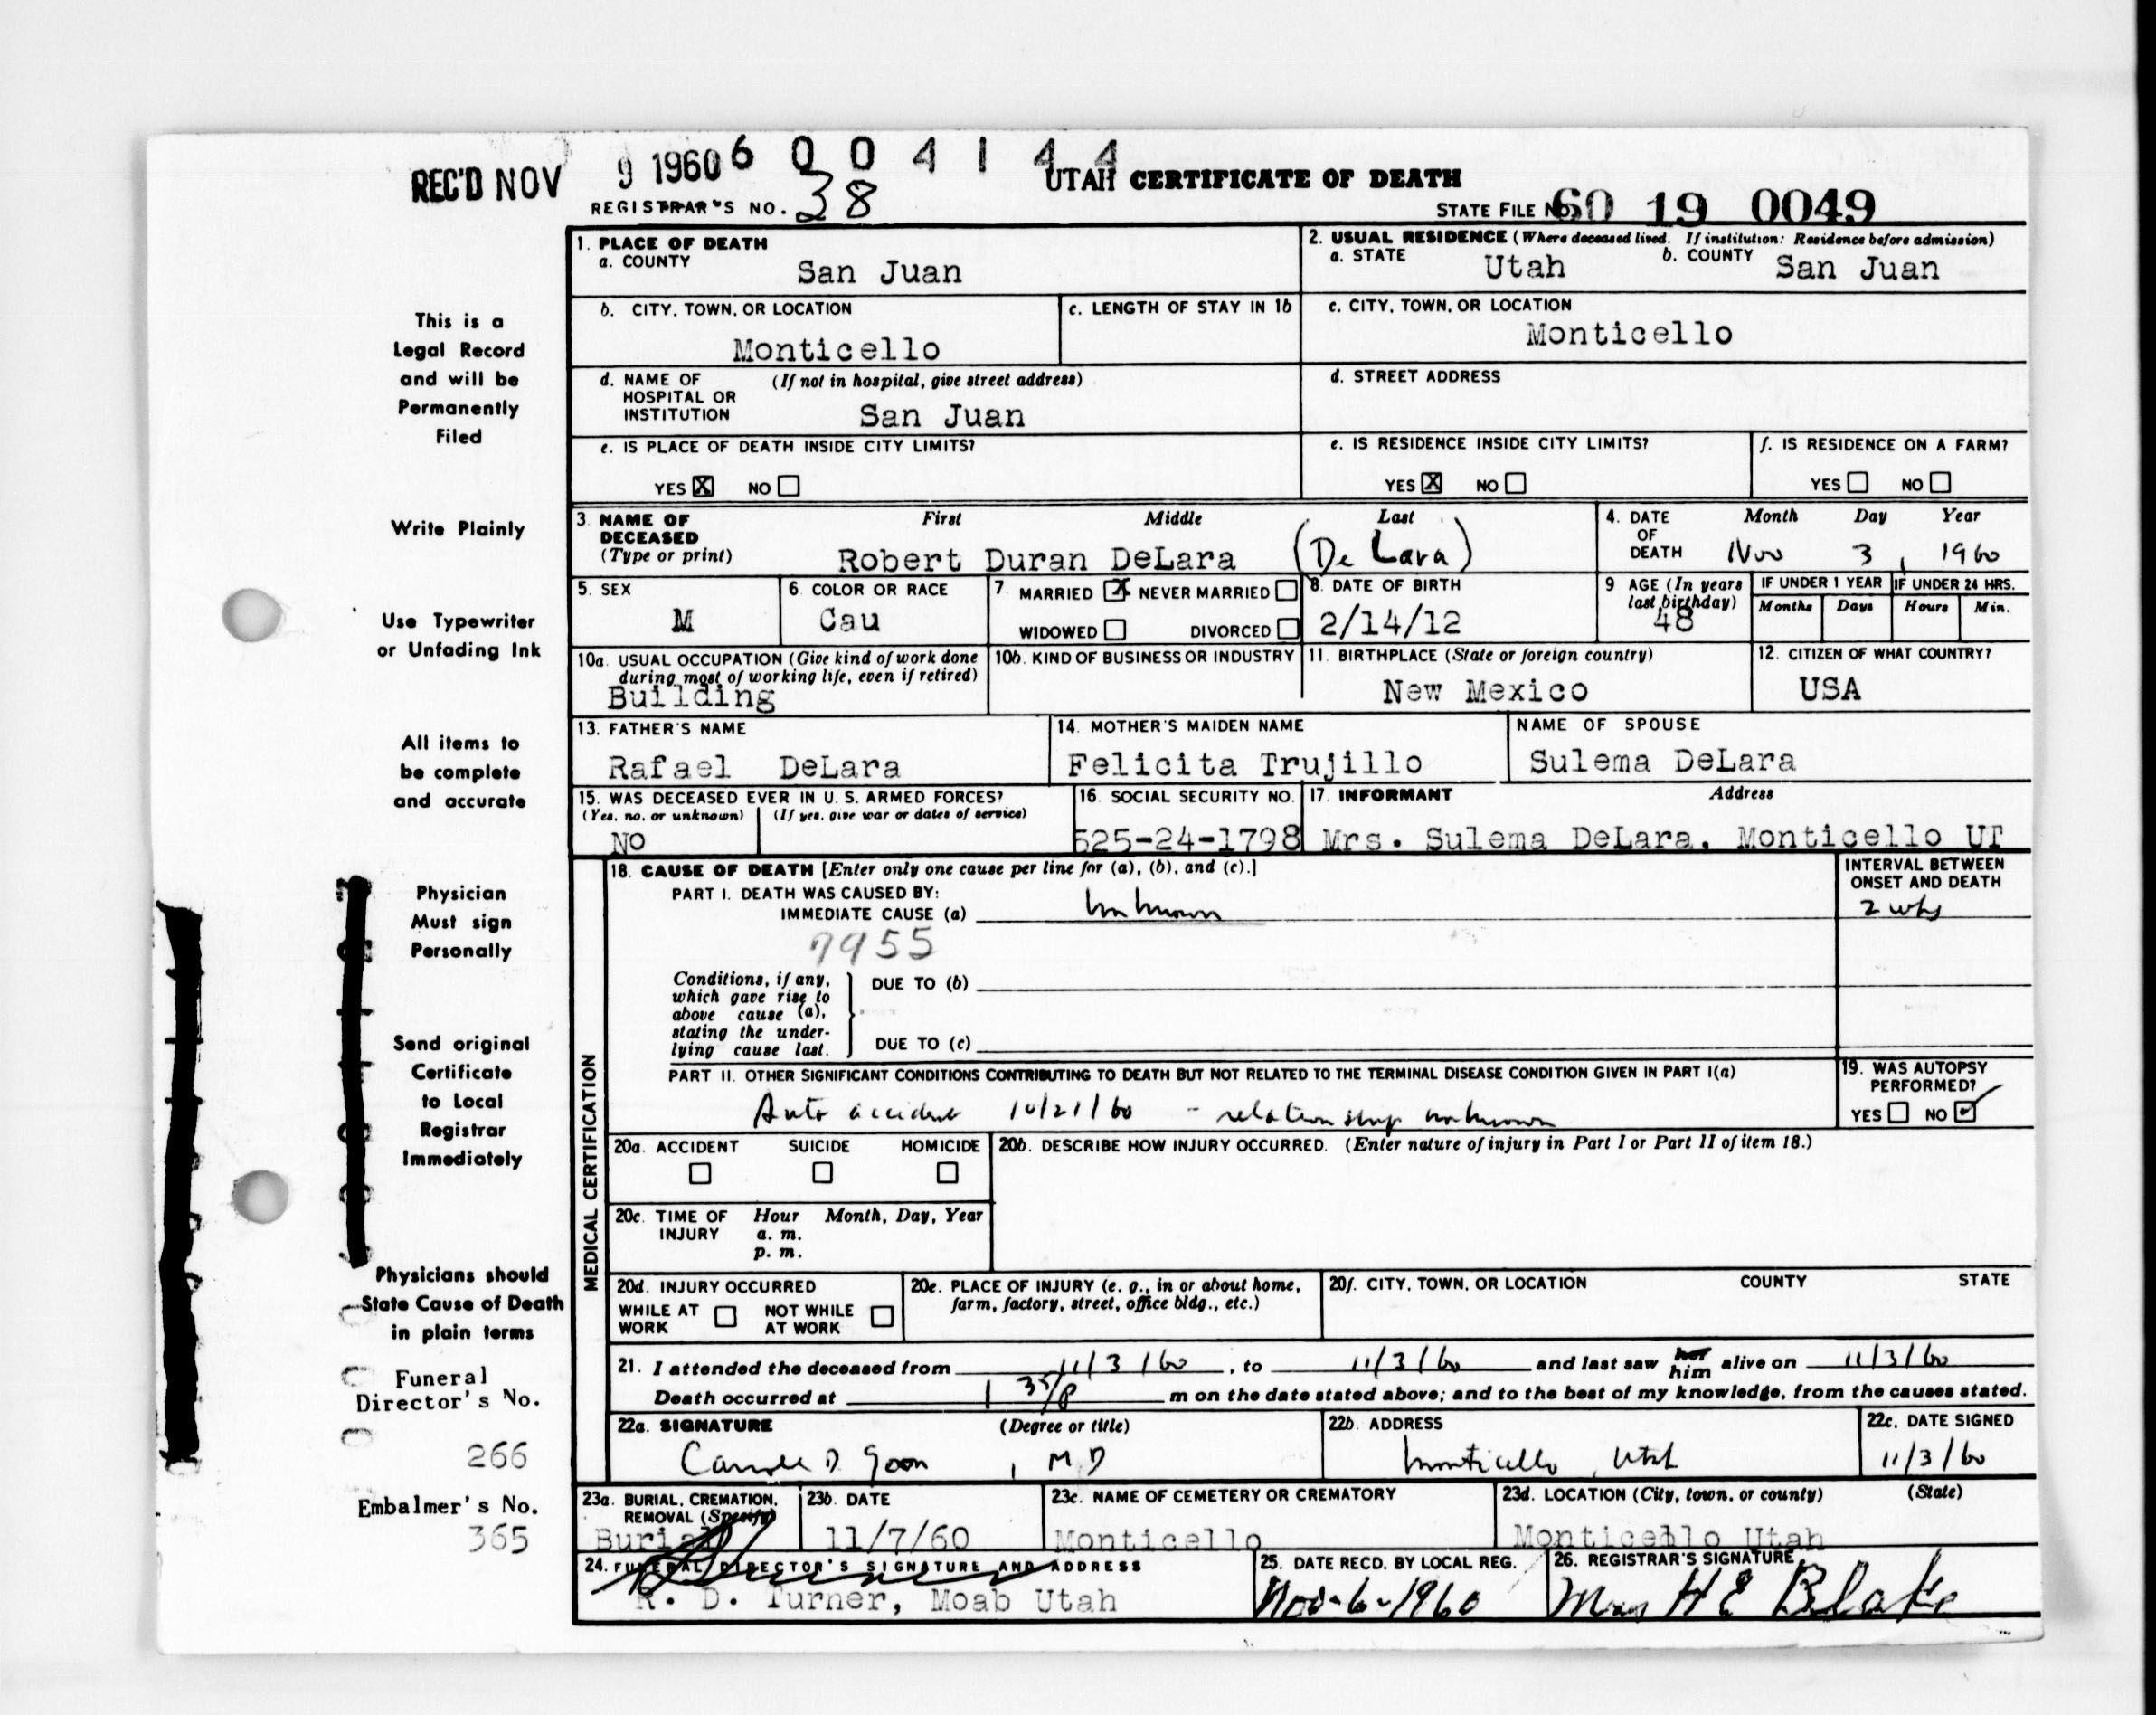 REC'D NOV 9 1960 6 0 0 4 1 4 4
UTAH CERTIFICATE OF DEATH
REGISTRAR'S NO. 38
STATE FILE No. 60 19 0049
This is a
Legal Record
and will be
Permanently
Filed
Write Plainly
Use Typewriter
or Unfading Ink
All items to
be complete
and accurate
Physician
Must sign
Personally
Send original
Certificate
to Local
Registrar
Immediately
Physicians should
State Cause of Death
in plain terms
Funeral
Director's No.
266
Embalmer's No.
365
1. PLACE OF DEATH
a. COUNTY San Juan
2. USUAL RESIDENCE (Where deceased lived. If institution: Residence before admission)
a. STATE Utah b. COUNTY San Juan
b. CITY, TOWN, OR LOCATION
Monticello
c. LENGTH OF STAY IN 1b
c. CITY, TOWN, OR LOCATION
Monticello
d. NAME OF HOSPITAL OR INSTITUTION (If not in hospital, give street address)
San Juan
d. STREET ADDRESS
e. IS PLACE OF DEATH INSIDE CITY LIMITS?
YES X NO
e. IS RESIDENCE INSIDE CITY LIMITS?
YES X NO
f. IS RESIDENCE ON A FARM?
YES NO
3. NAME OF DECEASED (Type or print) First Middle Last
Robert Duran DeLara (De Lara)
4. DATE OF DEATH Month Day Year
Nov 3, 1960
5. SEX
M
6. COLOR OR RACE
Cau
7. MARRIED X NEVER MARRIED
WIDOWED DIVORCED
8. DATE OF BIRTH
2/14/12
9. AGE (In years last birthday)
48
IF UNDER 1 YEAR
Months Days
IF UNDER 24 HRS.
Hours Min.
10a. USUAL OCCUPATION (Give kind of work done during most of working life, even if retired)
Building
10b. KIND OF BUSINESS OR INDUSTRY
11. BIRTHPLACE (State or foreign country)
New Mexico
12. CITIZEN OF WHAT COUNTRY?
USA
13. FATHER'S NAME
Rafael DeLara
14. MOTHER'S MAIDEN NAME
Felicita Trujillo
NAME OF SPOUSE
Sulema DeLara
15. WAS DECEASED EVER IN U. S. ARMED FORCES?
(Yes, no, or unknown) (If yes, give war or dates of service)
No
16. SOCIAL SECURITY NO.
525-24-1798
17. INFORMANT Address
Mrs. Sulema DeLara, Monticello UT
MEDICAL CERTIFICATION
18. CAUSE OF DEATH [Enter only one cause per line for (a), (b), and (c).]
PART I. DEATH WAS CAUSED BY:
IMMEDIATE CAUSE (a) Unknown
7955
INTERVAL BETWEEN ONSET AND DEATH
2 wks
Conditions, if any, which gave rise to above cause (a), stating the underlying cause last.
DUE TO (b)
DUE TO (c)
PART II. OTHER SIGNIFICANT CONDITIONS CONTRIBUTING TO DEATH BUT NOT RELATED TO THE TERMINAL DISEASE CONDITION GIVEN IN PART I(a)
Auto accident 10/21/60 - relationship unknown
19. WAS AUTOPSY PERFORMED?
YES NO ✓
20a. ACCIDENT SUICIDE HOMICIDE
20b. DESCRIBE HOW INJURY OCCURRED. (Enter nature of injury in Part I or Part II of item 18.)
20c. TIME OF INJURY Hour Month, Day, Year
a. m.
p. m.
20d. INJURY OCCURRED
WHILE AT WORK NOT WHILE AT WORK
20e. PLACE OF INJURY (e. g., in or about home, farm, factory, street, office bldg., etc.)
20f. CITY, TOWN, OR LOCATION COUNTY STATE
21. I attended the deceased from 11/3/60, to 11/3/60 and last saw her him alive on 11/3/60
Death occurred at 1 35/P m on the date stated above; and to the best of my knowledge, from the causes stated.
22a. SIGNATURE (Degree or title)
D. Goon, MD
22b. ADDRESS
Monticello, Utah
22c. DATE SIGNED
11/3/60
23a. BURIAL, CREMATION, REMOVAL (Specify)
Burial
23b. DATE
11/7/60
23c. NAME OF CEMETERY OR CREMATORY
Monticello
23d. LOCATION (City, town, or county) (State)
Monticello Utah
24. FUNERAL DIRECTOR'S SIGNATURE AND ADDRESS
R. D. Turner, Moab Utah
25. DATE RECD. BY LOCAL REG.
Nov-6-1960
26. REGISTRAR'S SIGNATURE
H E Blake